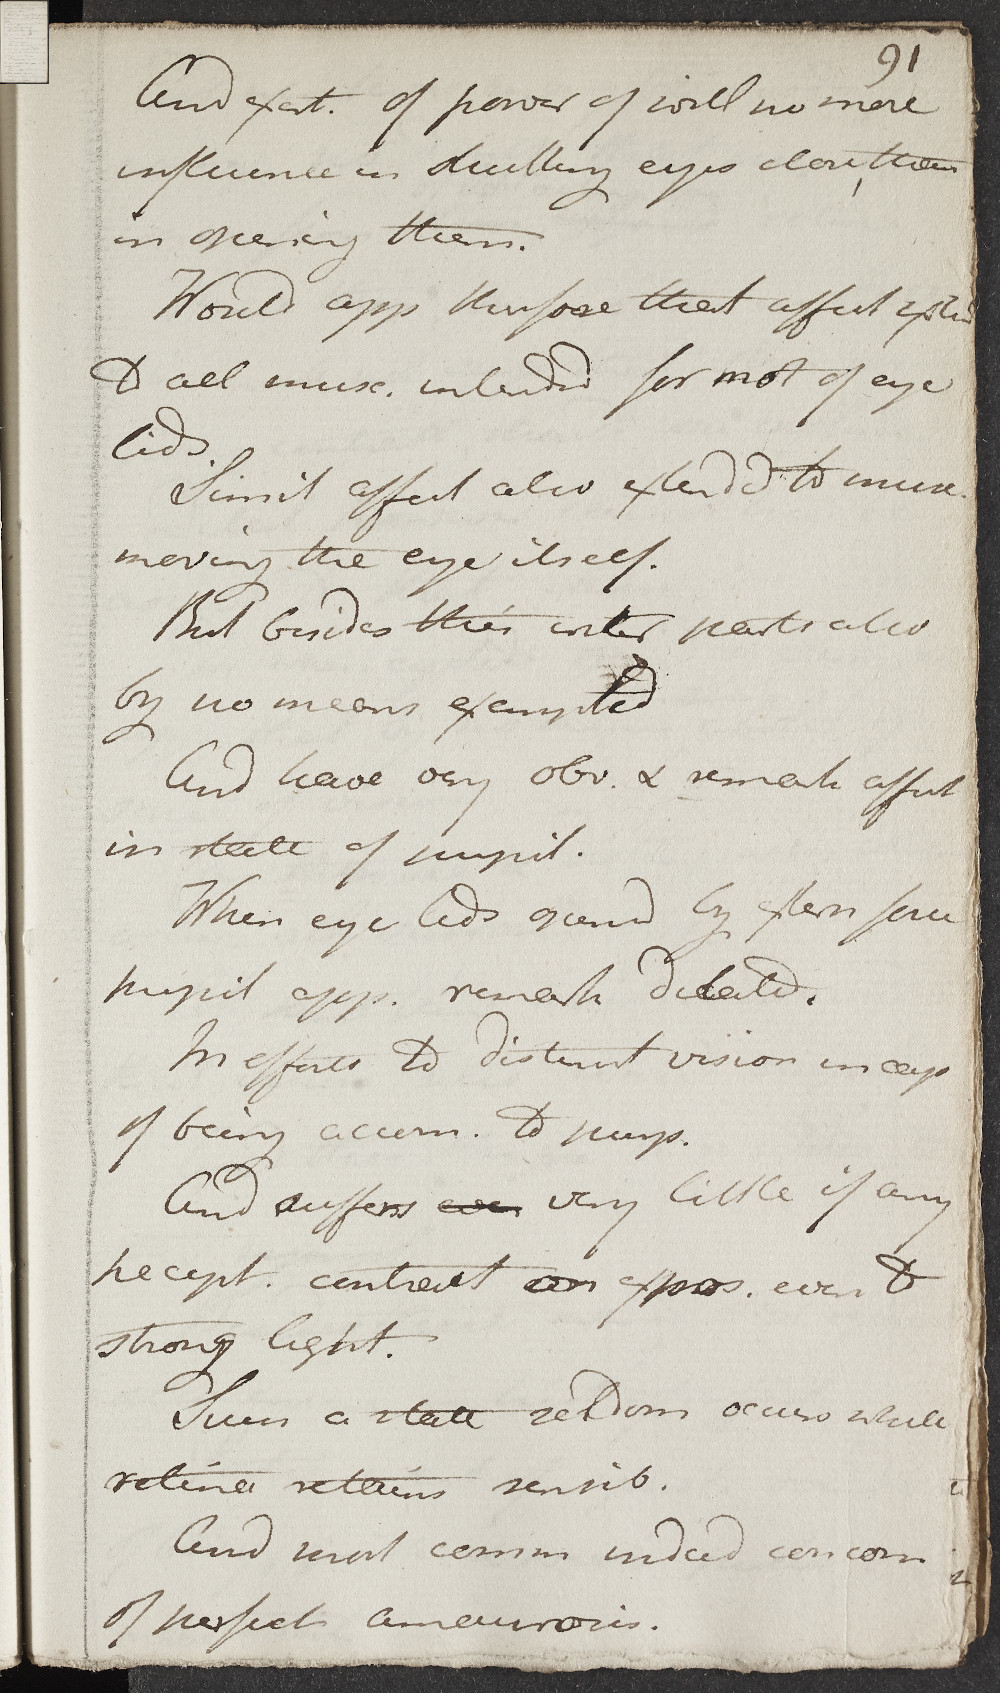 91
And exert. of power of will no more
influence in shutting eyes close, than
in opening them.
Would app therefore that affect extend
to all musc. intended for mot of eye
lids.
Simil affect also extendd to musc.
moving the eye itself.
But besides this inter parts also
by no means exempted
And have very obv. & remark affect
in state of pupil.
When eye lids opened by extern force
pupil app. remark dilated.
In efforts to distinct vision incap
of being accom. to purp.
And suffers very little if any
percept. contract on expos. even to
strong light.
Such a state seldom occurs while
retina retains sensib.
And most comm indeed concom
of perfect amaurosis.